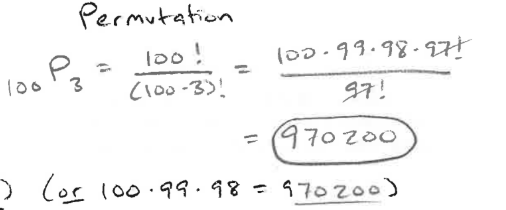 Permutation
₁₀₀P₃ = 100! / (100-3)! = 100·99·98·97! / 97!
= 970200
) (or 100·99·98 = 970200)